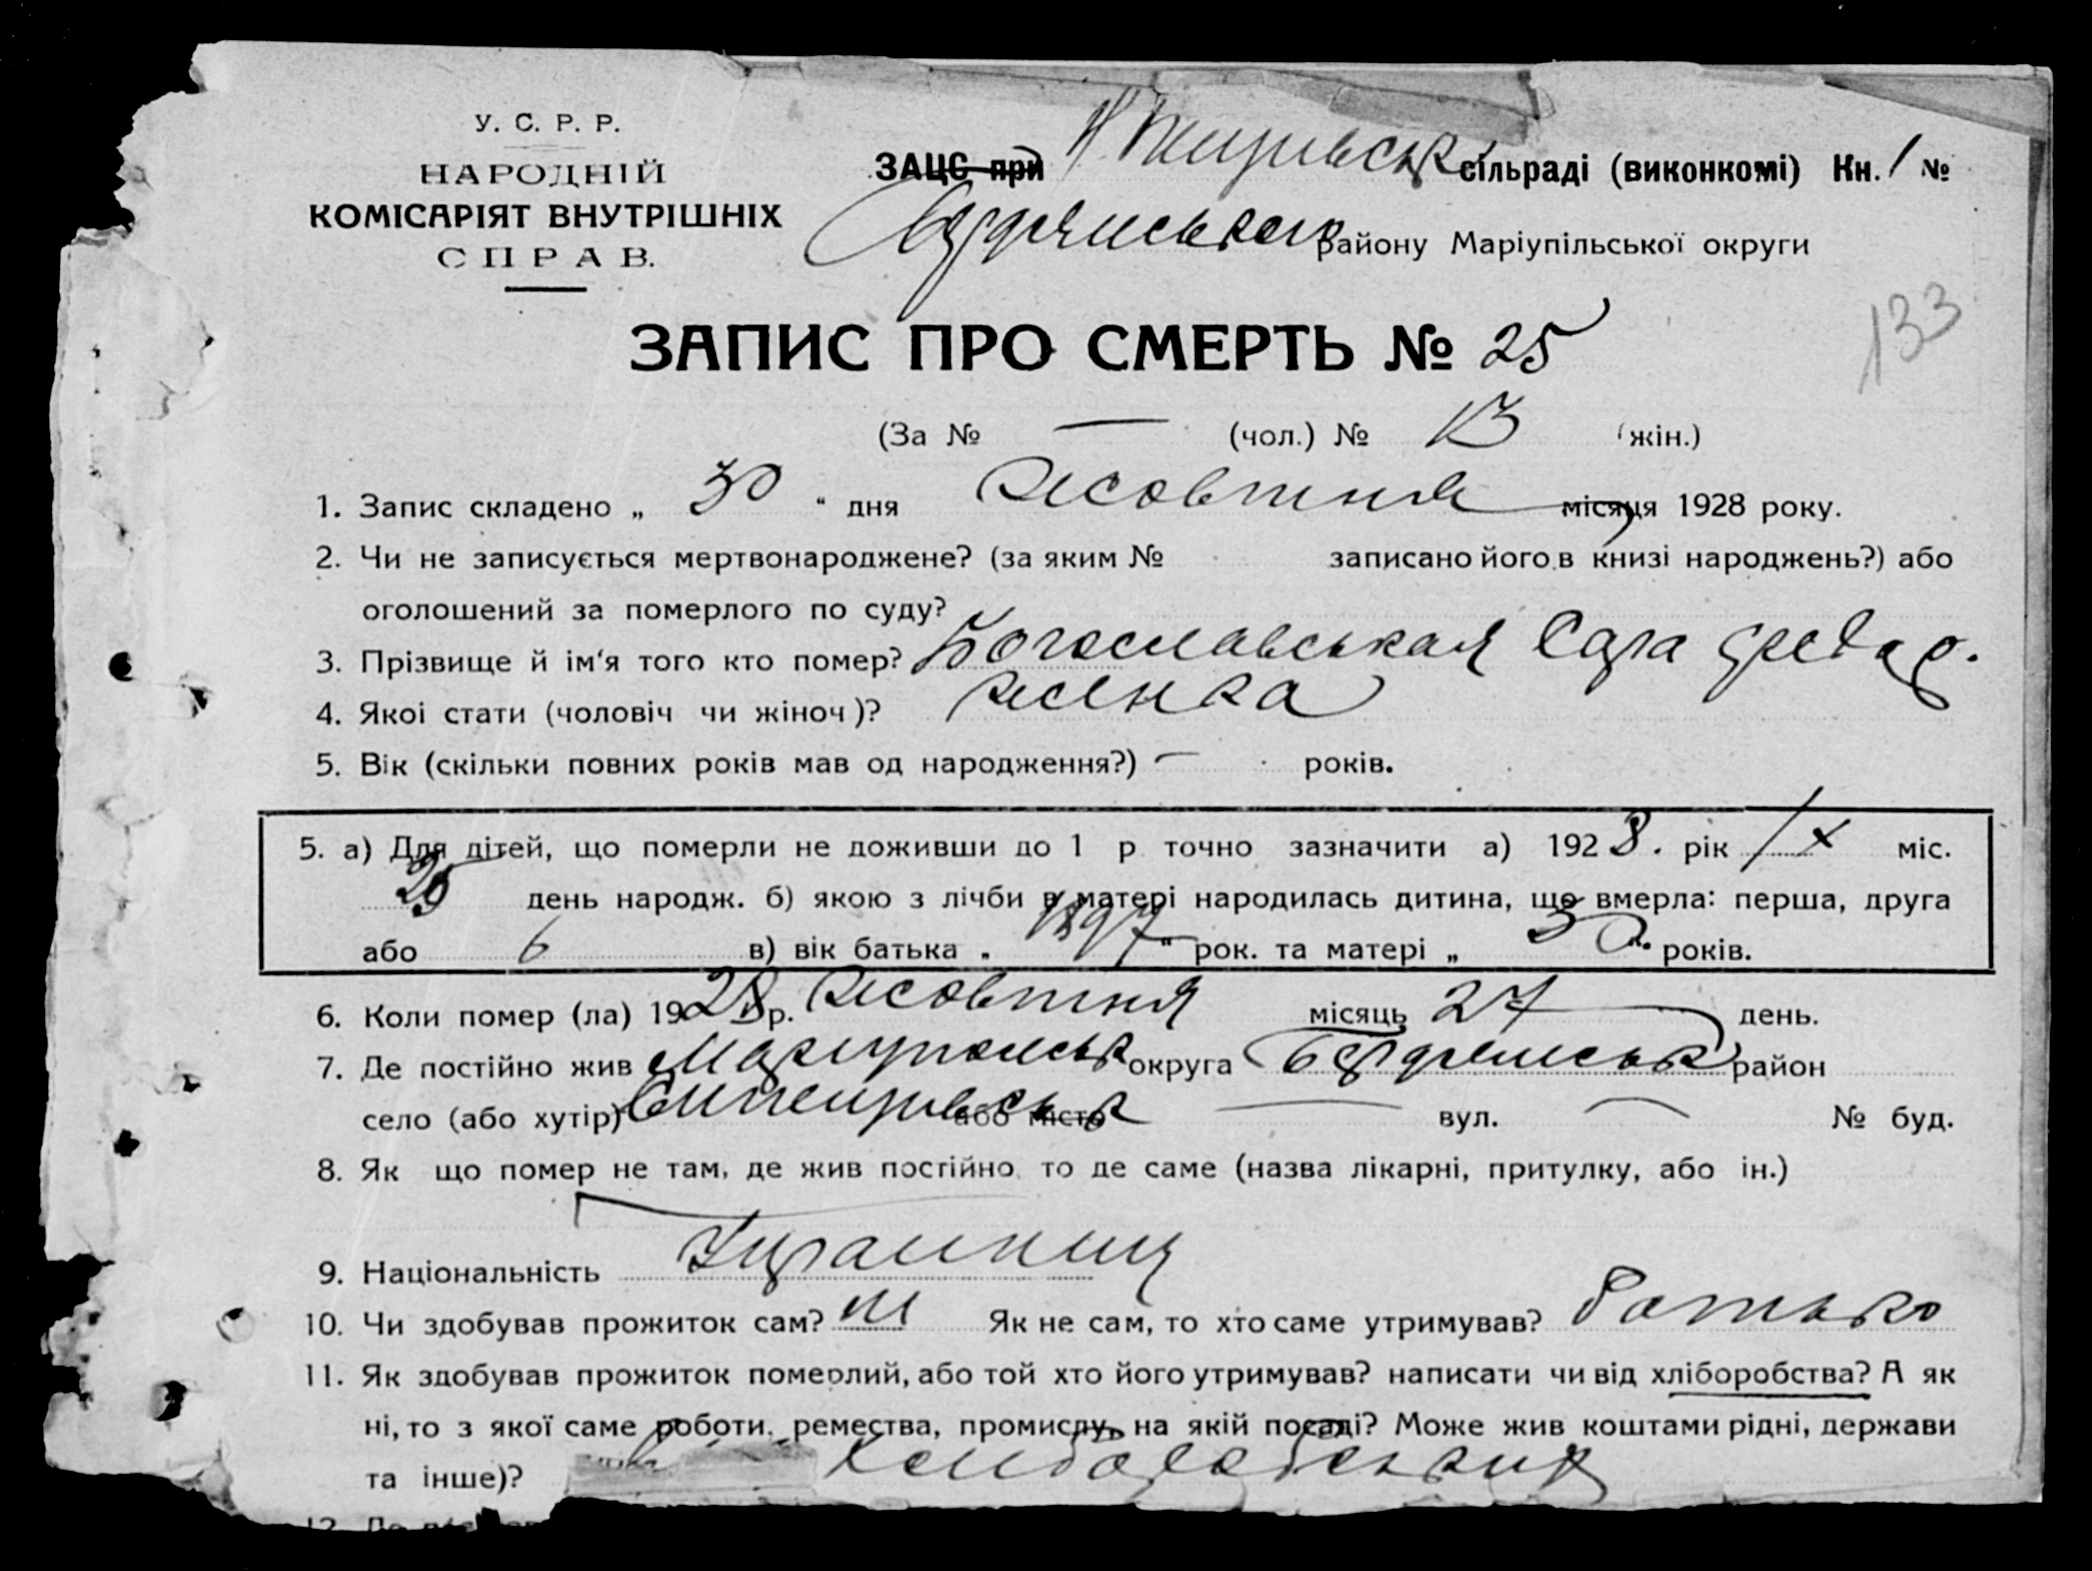 У. С. Р. Р.
НАРОДНІЙ
КОМІСАРІЯТ ВНУТРІШНІХ
СПРАВ.
ЗАЦС при сільраді (виконкомі) Кн. 1 №
району Маріупільської округи
133
ЗАПИС ПРО СМЕРТЬ № 25
(За № — (чол.) № 13 (жін.)
1. Запис складено „ 30 “ дня жовтня місяця 1928 року.
2. Чи не записується мертвонароджене? (за яким № записано його в книзі народжень?) або
оголошений за померлого по суду?
3. Прізвище й ім'я того кто помер? Богославськая
4. Якоі стати (чоловіч чи жіноч)? жінка
5. Вік (скільки повних років мав од народження?) — років.
5. а) Для дітей, що померли не доживши до 1 р точно зазначити а) 1928. рік IX міс.
день народж. б) якою з лічби в матері народилась дитина, що вмерла: перша, друга
або 6 в) вік батька „ 1897 “ рок. та матері „ 30 “ років.
6. Коли помер (ла) 1928 р. жовтня місяць 27 день.
7. Де постійно жив Маріупольськ округа район
село (або хутір) або місто — вул. — № буд.
8. Як що помер не там, де жив постійно, то де саме (назва лікарні, притулку, або ін.)
9. Національність
10. Чи здобував прожиток сам? ні Як не сам, то хто саме утримував? батько
11. Як здобував прожиток померлий, або той хто його утримував? написати чи від хліборобства? А як
ні, то з якої саме роботи, ремества, промислу, на якій посаді? Може жив коштами рідні, держави
та інше)?